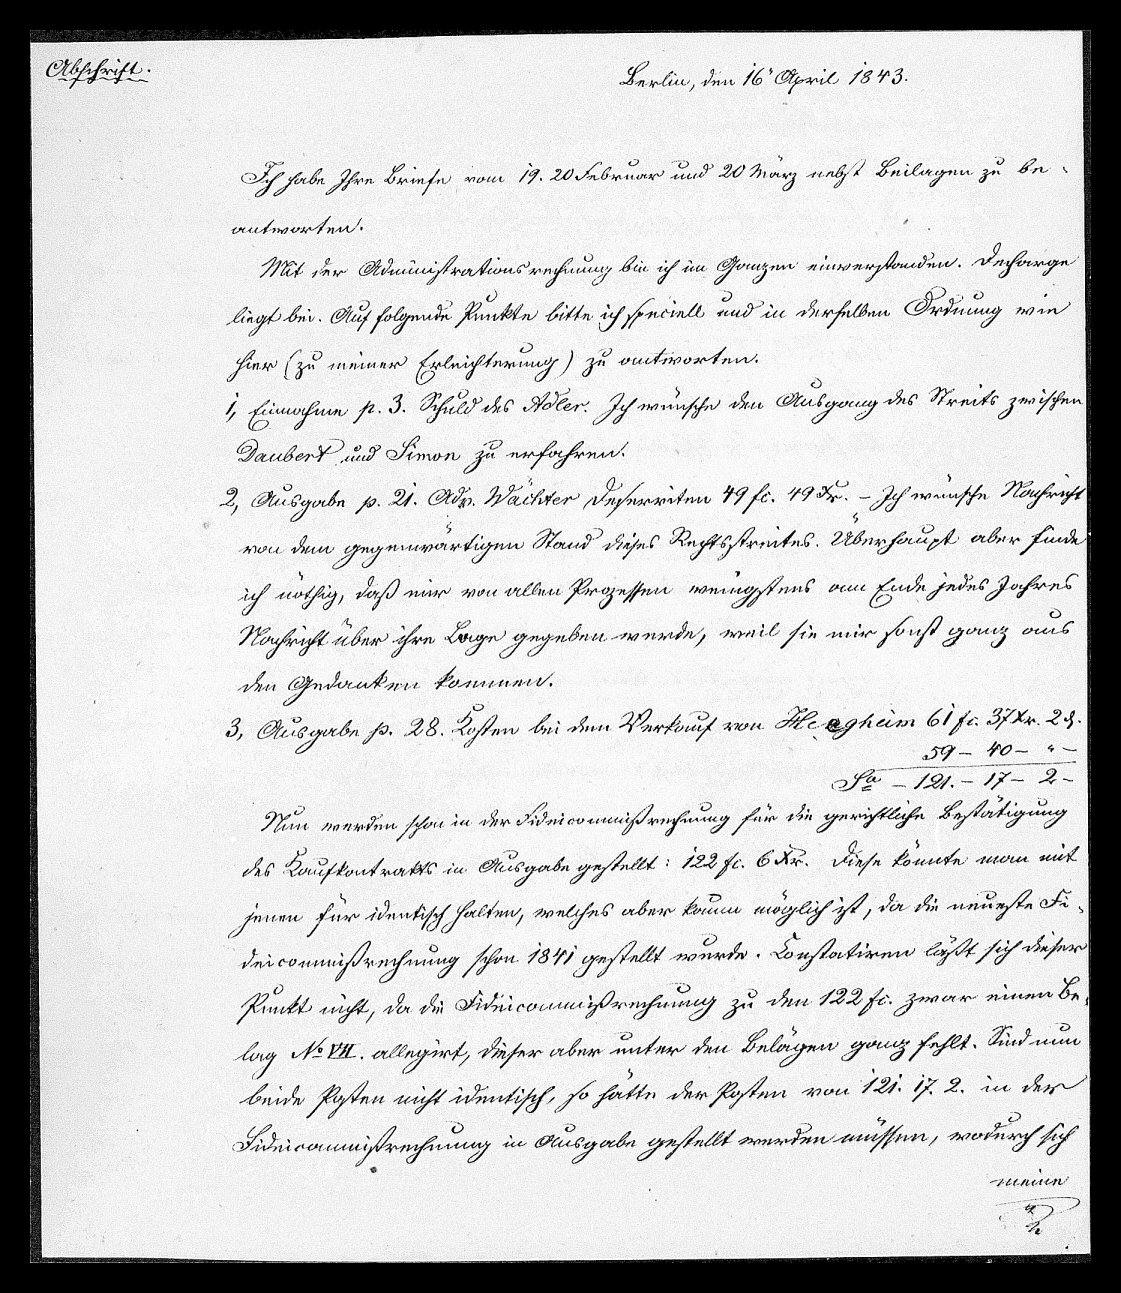 Abschrift.
Berlin, den 16' April 1843.
Ich habe Ihre Briefe vom 19. 20 Februar und 20 März nebst Beilagen zu be-
antworten.
Mit der Administrationsrechnung bin ich im Ganzen einverstanden. Decharge
liegt bei. Auf folgende Punkte bitte ich speciell und in derselben Ordnung wie
hier (zu meiner Erleichterung) zu antworten.
1, Einnahme p. 3. Schuld des Adler. Ich wünsche den Ausgang des Streits zwischen
Daubert und Simon zu erfahren.
2, Ausgabe p. 21. Adv. Wächter Deserviten 49 fl. 49 Xr. – Ich wünsche Nachricht
von dem gegenwärtigen Stand dieses Rechtsstreites. Überhaupt aber finde
ich nöthig, daß mir von allen Prozessen wenigstens am Ende jedes Jahres
Nachricht über ihre Lage gegeben werde, weil sie mir sonst ganz aus
den Gedanken kommen.
3, Ausgabe p. 28. Kosten bei dem Verkauf von 61 fl. 37 Xr. 2 d.
59 – 40 – " –
Sa – 121. – 17 – 2 –
Nun werden schon in der Fideicommißrechnung für die gerichtliche Bestätigung
des Kaufkontrakts in Ausgabe gestellt: 122 fl. 6 Xr. Diese könnte man mit
jenen für identisch halten, welches aber kaum möglich ist, da die neueste Fi-
deicommißrechnung schon 1841 gestellt wurde. Constatiren läßt sich dieser
Punkt nicht, da die Fideicommißrechnung zu den 122 fl. zwar einen Be-
lag No VII. allegirt, dieser aber unter den Belägen ganz fehlt. Sind nun
beide Posten nicht identisch, so hätte der Posten von 121. 17. 2. in der
Fideicommißrechnung in Ausgabe gestellt werden müssen, wodurch sich
meine